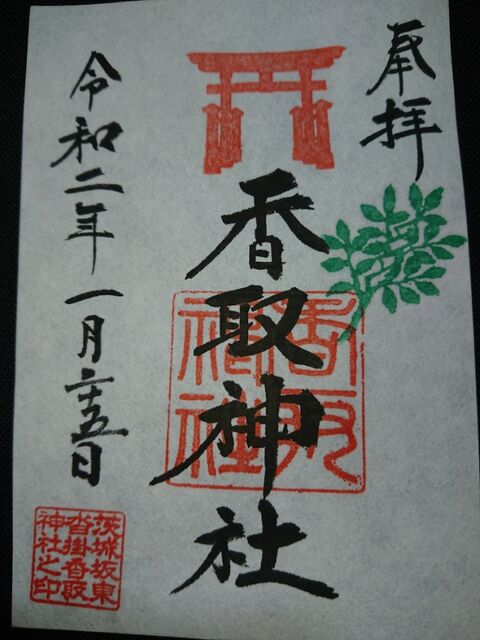 奉拝
香取神社
香取
神社
令和二年一月廿五日
茨城坂東
沓掛香取
神社之印